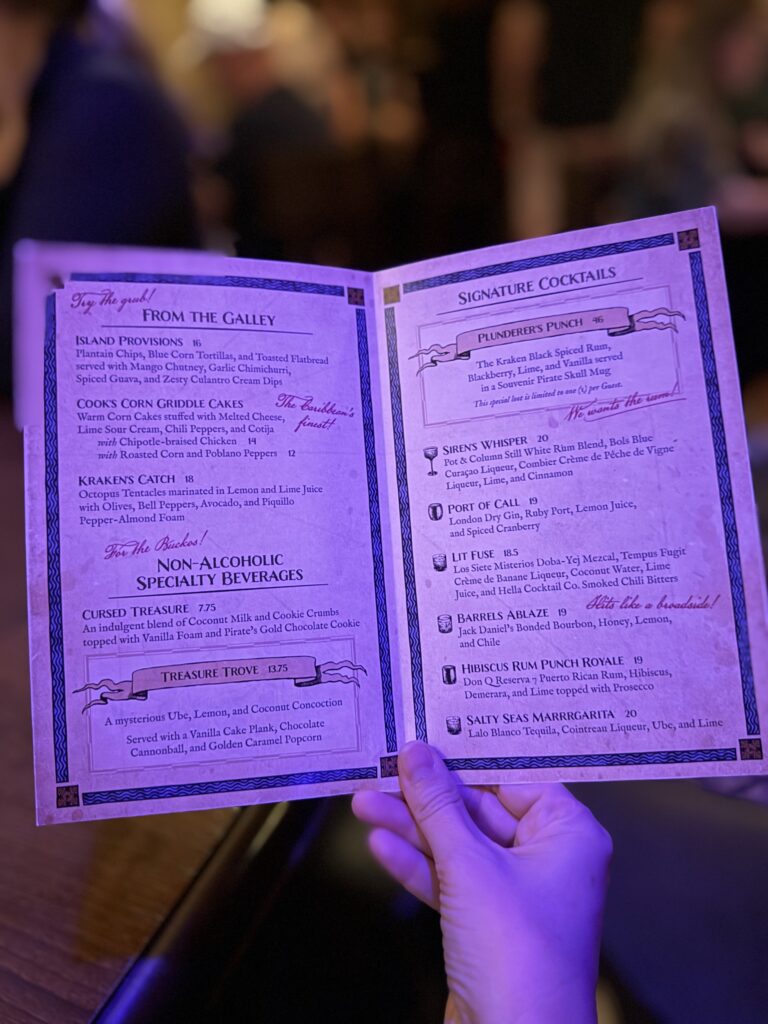 Try the grub!
FROM THE GALLEY
ISLAND PROVISIONS 16
Plantain Chips, Blue Corn Tortillas, and Toasted Flatbread
served with Mango Chutney, Garlic Chimichurri,
Spiced Guava, and Zesty Culantro Cream Dips
COOK'S CORN GRIDDLE CAKES
Warm Corn Cakes stuffed with Melted Cheese,
Lime Sour Cream, Chili Peppers, and Cotija
with Chipotle-braised Chicken 14
with Roasted Corn and Poblano Peppers 12
The Caribbean's
finest!
KRAKEN'S CATCH 18
Octopus Tentacles marinated in Lemon and Lime Juice
with Olives, Bell Peppers, Avocado, and Piquillo
Pepper-Almond Foam
For the Buckos!
NON-ALCOHOLIC
SPECIALTY BEVERAGES
CURSED TREASURE 7.75
An indulgent blend of Coconut Milk and Cookie Crumbs
topped with Vanilla Foam and Pirate's Gold Chocolate Cookie
TREASURE TROVE 13.75
A mysterious Ube, Lemon, and Coconut Concoction
Served with a Vanilla Cake Plank, Chocolate
Cannonball, and Golden Caramel Popcorn
SIGNATURE COCKTAILS
PLUNDERER'S PUNCH 46
The Kraken Black Spiced Rum,
Blackberry, Lime, and Vanilla served
in a Souvenir Pirate Skull Mug
This special loot is limited to one (1) per Guest.
We wants the rum!
SIREN'S WHISPER 20
Pot & Column Still White Rum Blend, Bols Blue
Curaçao Liqueur, Combier Crème de Pêche de Vigne
Liqueur, Lime, and Cinnamon
PORT OF CALL 19
London Dry Gin, Ruby Port, Lemon Juice,
and Spiced Cranberry
LIT FUSE 18.5
Los Siete Misterios Doba-Yej Mezcal, Tempus Fugit
Crème de Banane Liqueur, Coconut Water, Lime
Juice, and Hella Cocktail Co. Smoked Chili Bitters
Hits like a broadside!
BARRELS ABLAZE 19
Jack Daniel's Bonded Bourbon, Honey, Lemon,
and Chile
HIBISCUS RUM PUNCH ROYALE 19
Don Q Reserva 7 Puerto Rican Rum, Hibiscus,
Demerara, and Lime topped with Prosecco
SALTY SEAS MARRRGARITA 20
Lalo Blanco Tequila, Cointreau Liqueur, Ube, and Lime